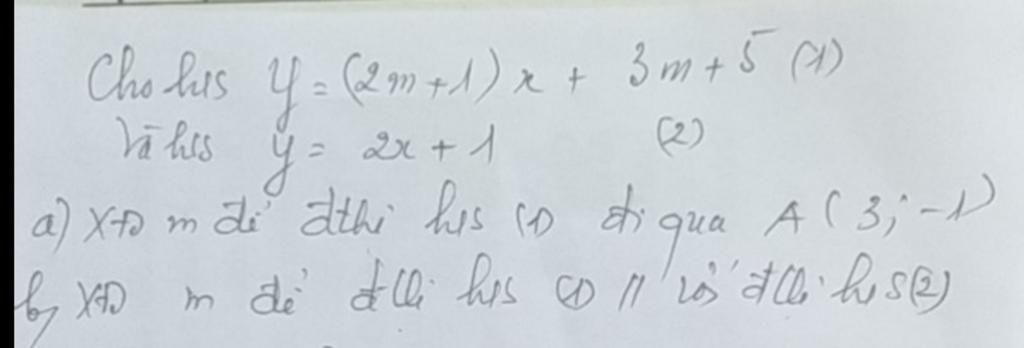 Cho h/s y = (2m+1)x + 3m+5 (1)
Và h/s y = 2x + 1 (2)
a) XĐ m để đthị h/s (1) đi qua A(3;-1)
b, XĐ m để đthị h/s (1) // với đthị h/s (2)